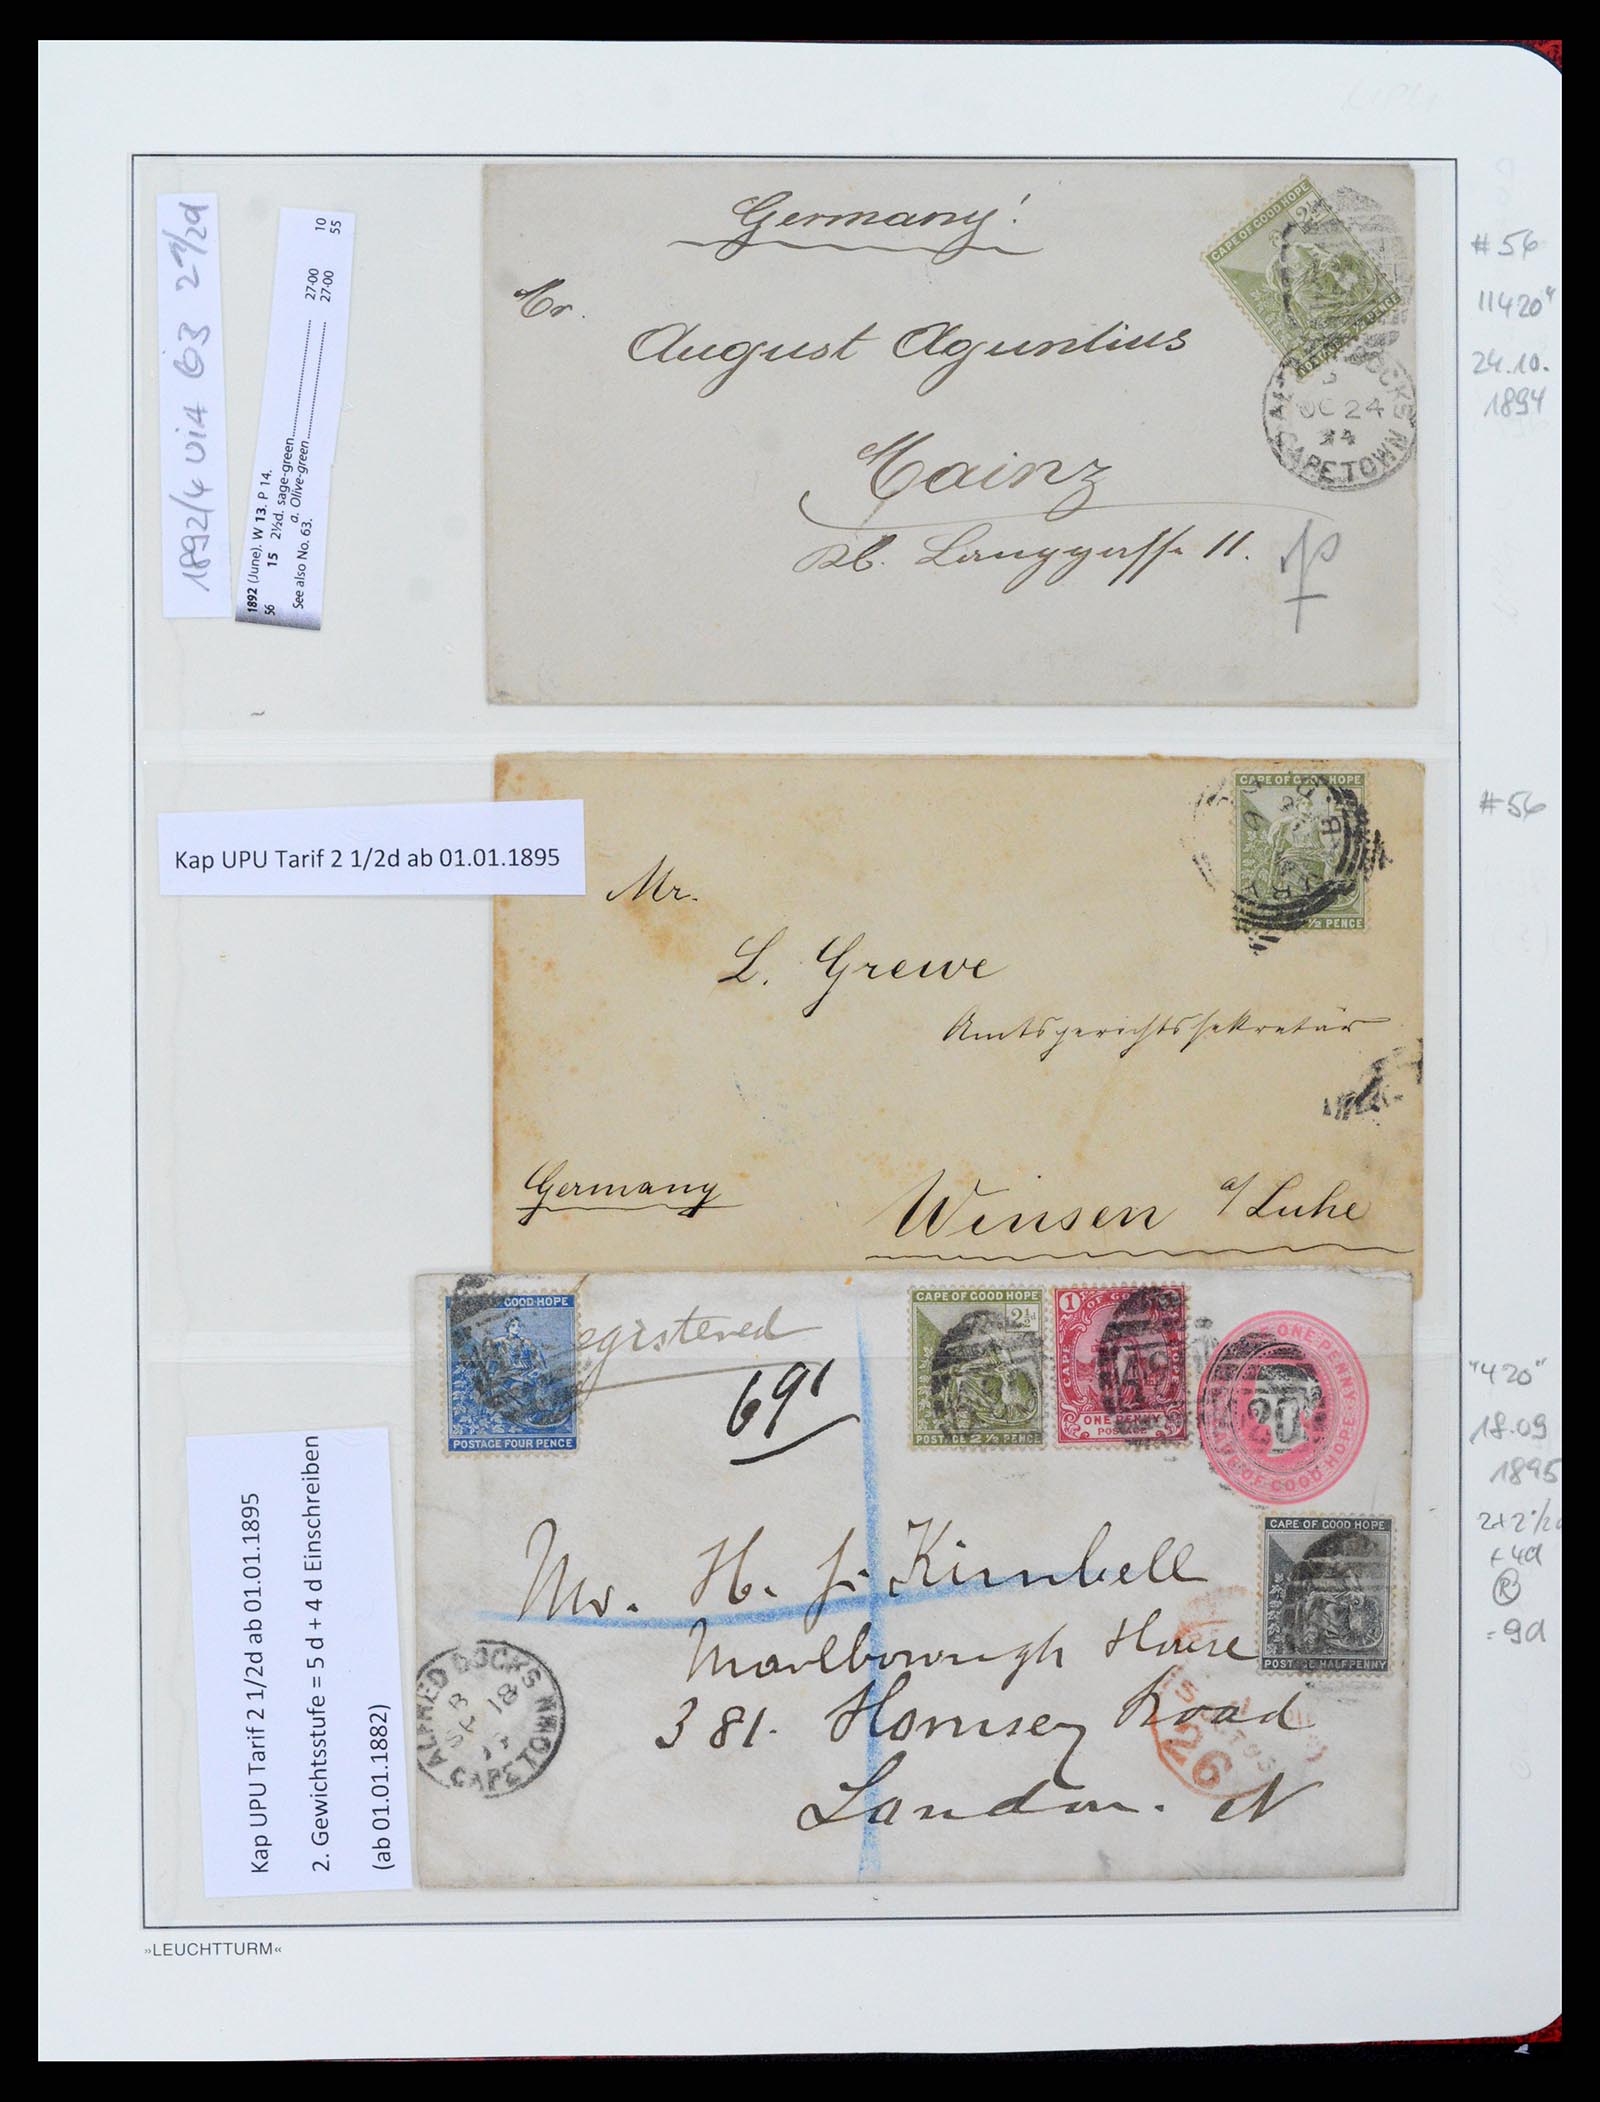 1892/4 via GB 2 1/2d
1892 (June). W 13. P 14.
56 15 2½d. sage-green 27·00 10
a. Olive-green 27·00 55
See also No. 63.
Germany!
Mr.
August Aguntius
Mainz
Kl. Langgasse 11.
CAPE OF GOOD HOPE
OC 24
94
CAPETOWN
# 56
24.10.
1894
Kap UPU Tarif 2 1/2d ab 01.01.1895
CAPE OF GOOD HOPE
½ PENCE
Mr.
L. Grewe
Amtsgerichtssekretär
Germany
Winsen a/Luhe
# 56
GOOD HOPE
POSTAGE FOUR PENCE
egistered
691
CAPE OF GOOD HOPE
2½d
POSTAGE 2 ½ PENCE
1
ONE PENNY
POSTAGE
ONE PENNY
CAPE OF GOOD HOPE
CAPE OF GOOD HOPE
POSTAGE HALFPENNY
Mr. H. J. Kimbell
Marlborough House
381. Hornsey Road
London. N
ALFRED DOCKS
18
CAPETOWN
26
Kap UPU Tarif 2 1/2d ab 01.01.1895
2. Gewichtsstufe = 5 d + 4 d Einschreiben
(ab 01.01.1882)
"420"
18.09
1895
2x2 1/2d
+ 4d
R
= 9d
»LEUCHTTURM«